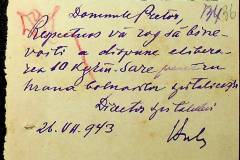 Domnule Pretor,
Respectuos vă rog să bine-
voiți a dispune elibera-
rea 10 Kgrm. Sare pentru
hrana bolnavilor spitalului
Director spitalului
26. VII. 943